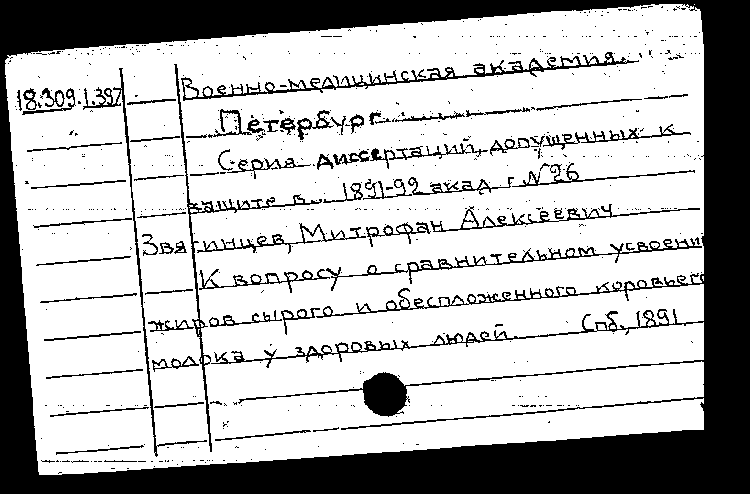 18.309.1.397 Военно-медицинская академия.
Петербург.
Серия диссертаций, допущенных к
защите в... 1891-92 акад. г. №26
Звягинцев, Митрофан Алексеевич
К вопросу о сравнительном усвоени
жиров сырого и обеспложенного коровьего
молока у здоровых людей. Спб., 1891